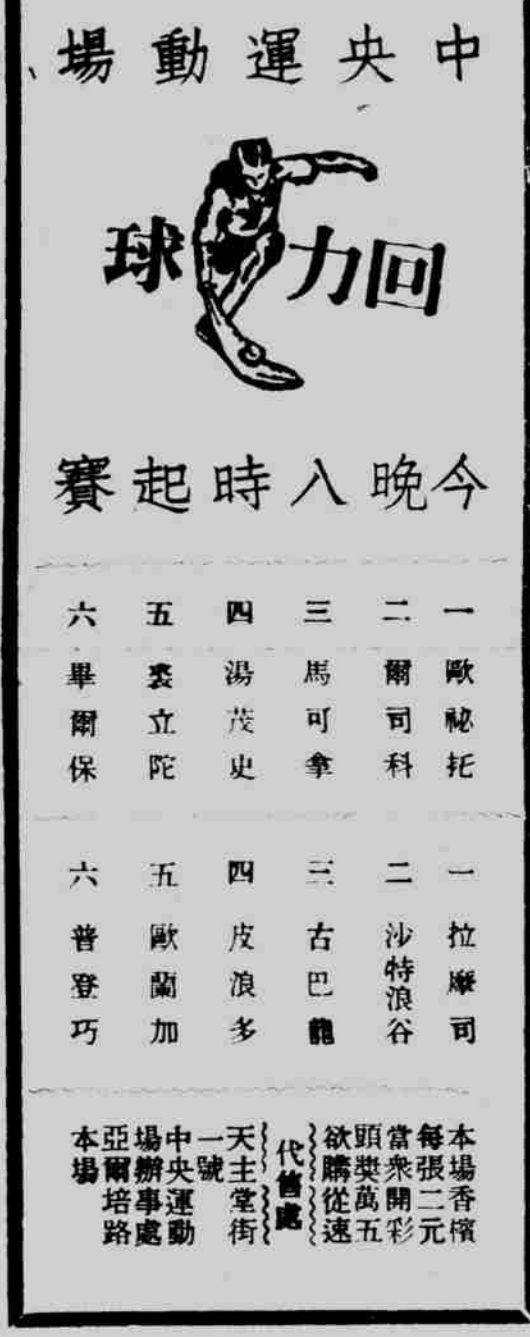 中央運動場
回力球
今晚八時起賽
一 歐祕托
二 爾司科
三 馬可拿
四 湯茂史
五 裘立陀
六 畢爾保
一 拉摩司
二 沙特浪谷
三 古巴龍
四 皮浪多
五 歐蘭加
六 普登巧
本場香檳
每張二元
當衆開彩
頭獎萬五
欲購從速
代售處
天主堂街
一號
中央運動
場辦事處
亞爾培路
本場